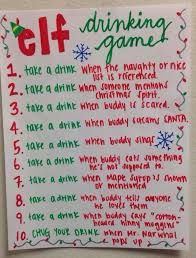 elf drinking
game
1. take a drink when the naughty or nice
list is referenced.
2. take a drink when someone mentions
Christmas Spirit.
3. take a drink when buddy is scared.
4. take a drink when buddy screams SANTA.
5. take a drink when buddy sings
6. take a drink when buddy eats something
he's not supposed to.
7. take a drink when maple syrup is shown
or mentioned
8. take a drink when buddy tells everyone
he loves
9. take a drink when buddy says "cotton-
headed ninny muggins"
10. CHUG YOUR DRINK when Mr. Narwhal
pops up